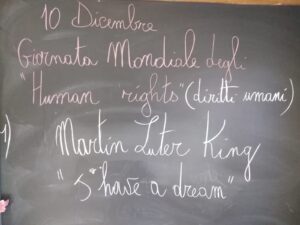 10 Dicembre
Giornata Mondiale degli
"Human rights" (diritti umani)
1) Martin Luter King
"I have a dream"